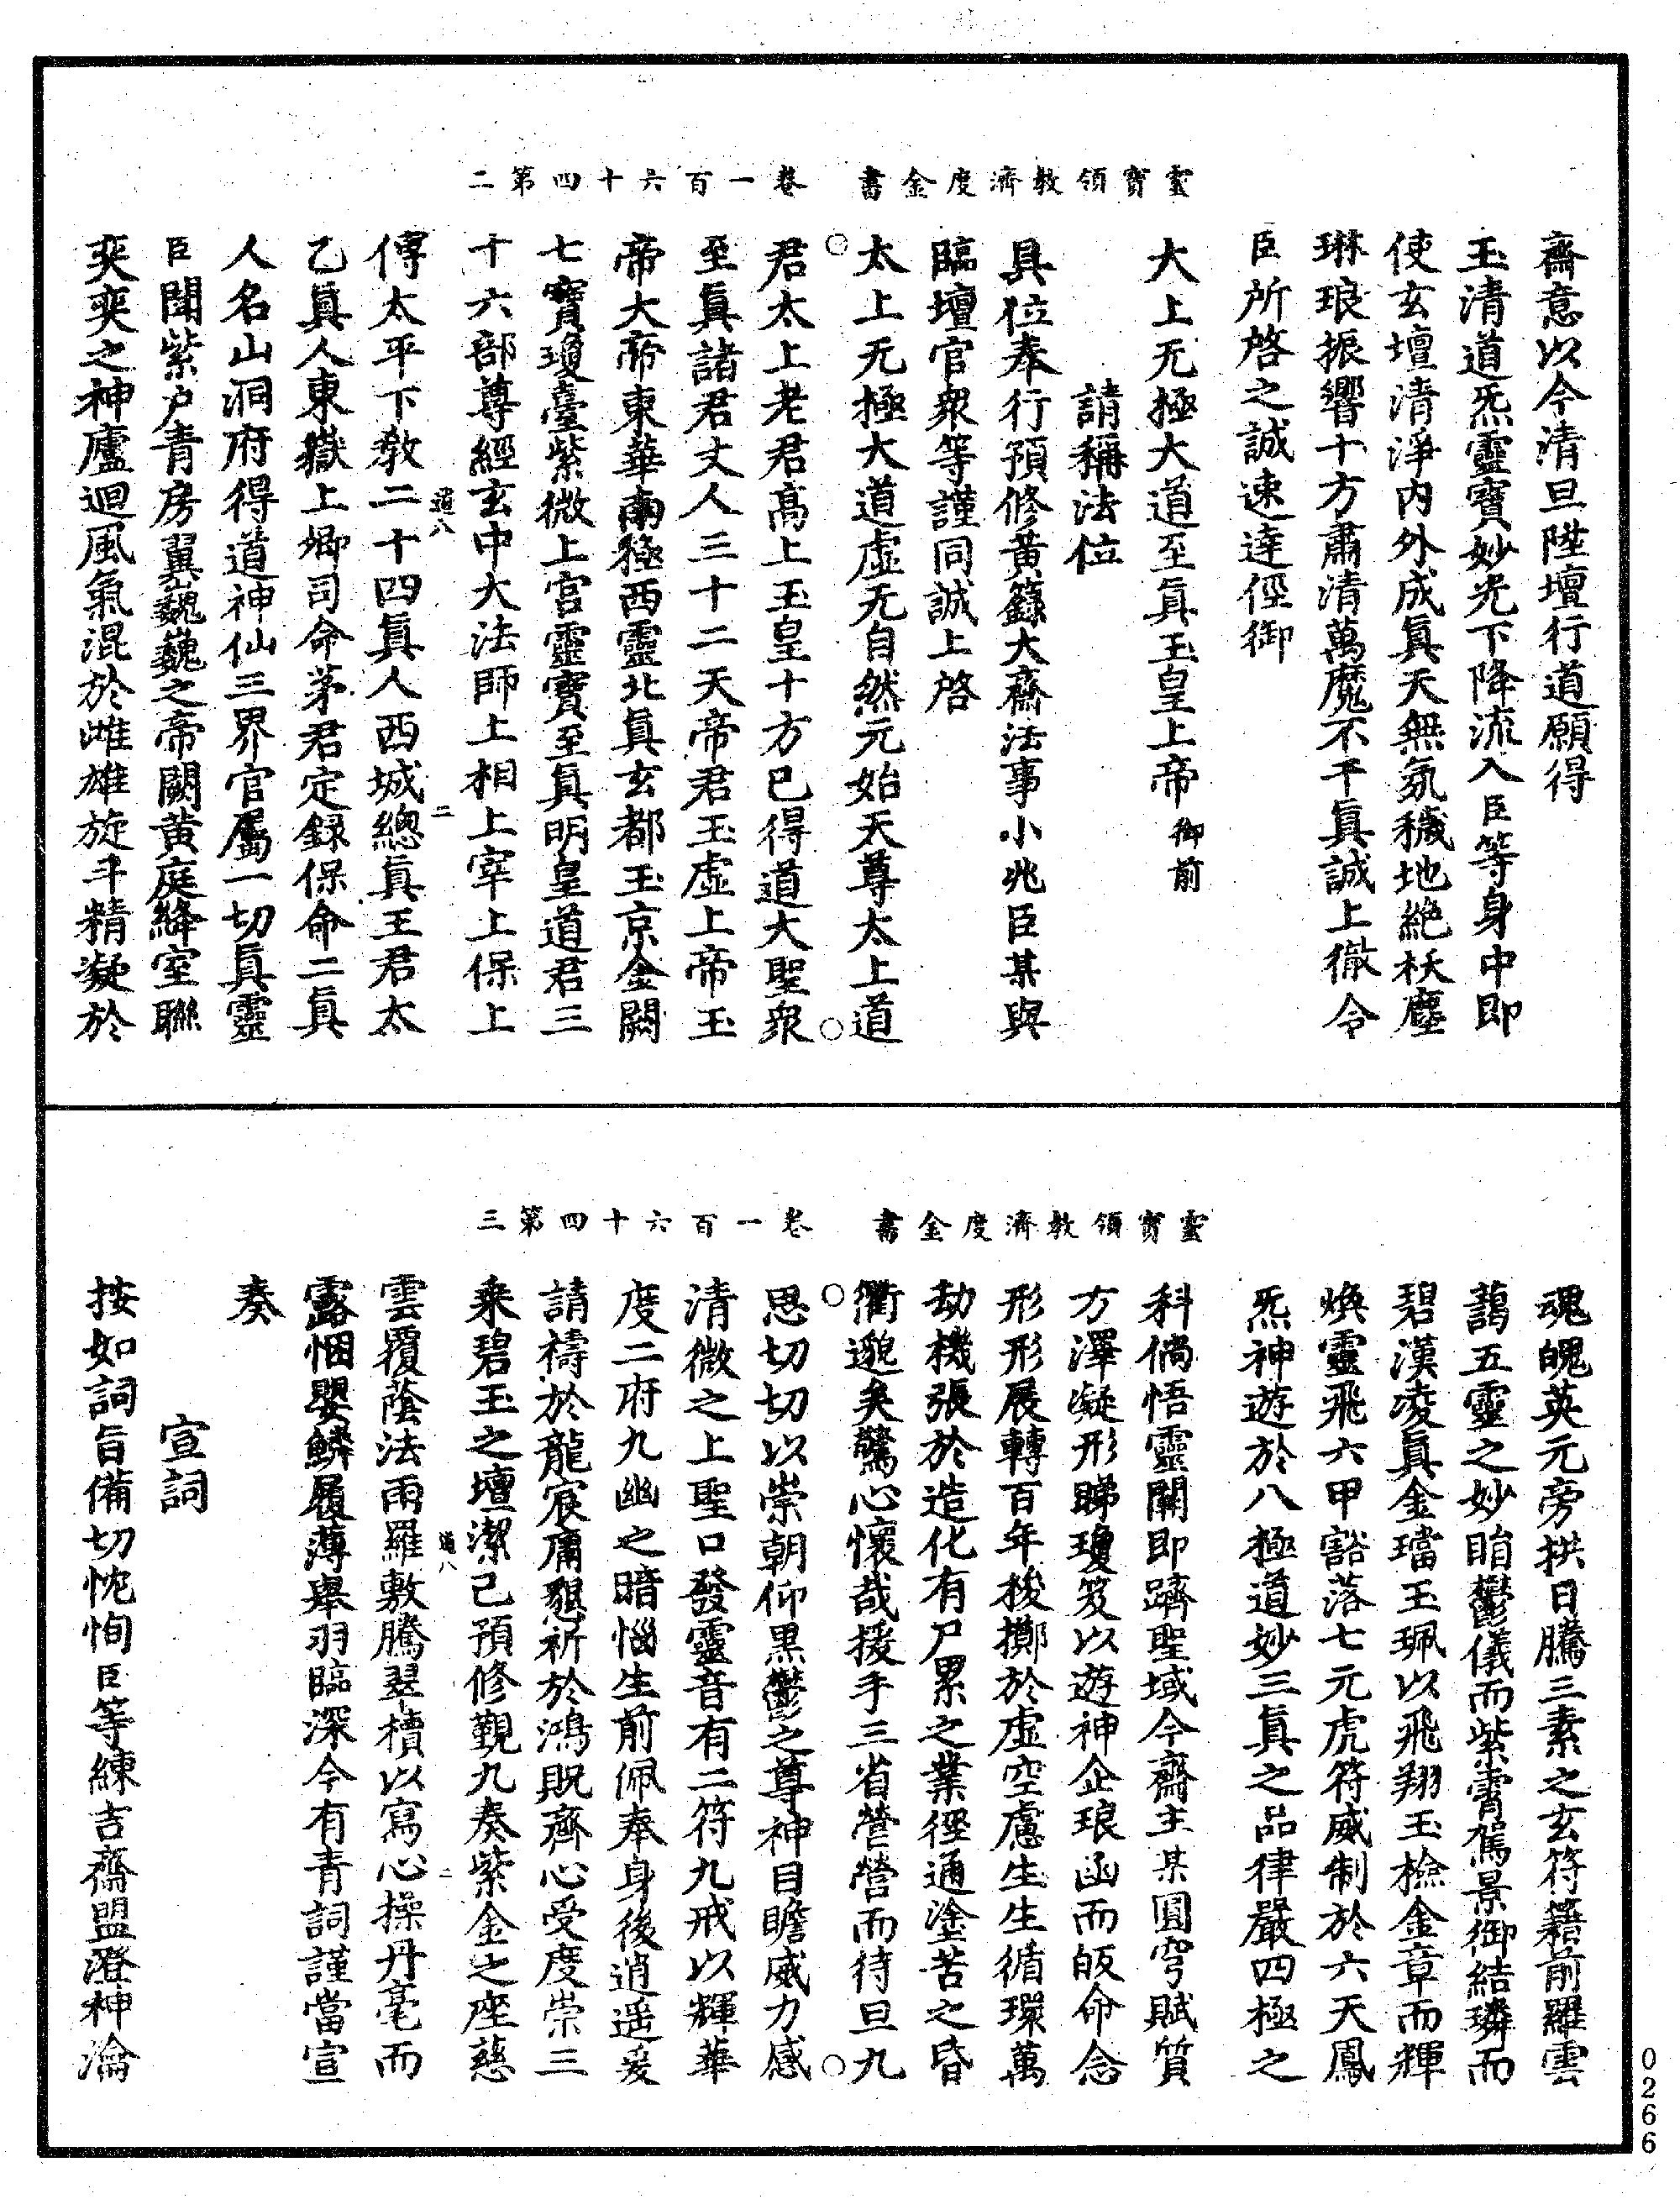 靈寶領教濟度金書　卷一百六十四第二
齋意以今清旦陞壇行道願得
玉清道炁靈寶妙光下降流入臣等身中即
使玄壇清淨內外成真天無氛穢地絕袄塵
琳琅振響十方肅清萬魔不干真誠上徹令
臣所啓之誠速達徑御
大上无極大道至真玉皇上帝御前
請稱法位
具位奉行預修黃籙大齋法事小兆臣某與
臨壇官眾等謹同誠上啓
太上无極大道虛无自然元始天尊太上道
君太上老君高上玉皇十方已得道大聖眾
至真諸君丈人三十二天帝君玉虛上帝玉
帝大帝東華南極西靈北真玄都玉京金闕
七寶瓊臺紫微上宮靈寶至真明皇道君三
十六部尊經玄中大法師上相上宰上保上
道八　二
傅太平下教二十四真人西城總真王君太
乙真人東嶽上卿司命茅君定錄保命二真
人名山洞府得道神仙三界官屬一切真靈
臣聞紫戶青房翼巍巍之帝闕黃庭絳室聯
奕奕之神廬迴風氣混於雌雄旋斗精凝於
靈寶領教濟度金書　卷一百六十四第三
魂魄英元旁拱日騰三素之玄符籍前羅雲
藹五靈之妙眙鬱儀而紫霄駕景御結璘而
碧漢凌真金璫玉珮以飛翔玉檢金章而輝
煥靈飛六甲豁落七元虎符威制於六天鳳
炁神遊於八極道妙三真之品律嚴四極之
科倘悟靈關即躋聖域今齋主某圓穹賦質
方澤凝形睇瓊笈以遊神企琅函而皈命念
形形展轉百年梭擲於虛空慮生生循環萬
劫機張於造化有尸累之業徑通塗苦之昏
衢邈矣驚心懷哉援手三省營營而待旦九
思切切以崇朝仰黑鬱之尊神目瞻威力感
清微之上聖口發靈音有二符九戒以輝華
度二府九幽之暗惱生前佩奉身後逍遥爰
請禱於龍宸庸懇祈於鴻貺齊心受度崇三
乘碧玉之壇潔己預修覲九奏紫金之座慈
道八　二
雲覆蔭法雨羅敷騰翠櫝以寫心操丹毫而
露悃嬰鱗履薄舉羽臨深今有青詞謹當宣
奏
宣詞
按如詞旨備切忱恂臣等練吉齋盟澄神瀹
0266